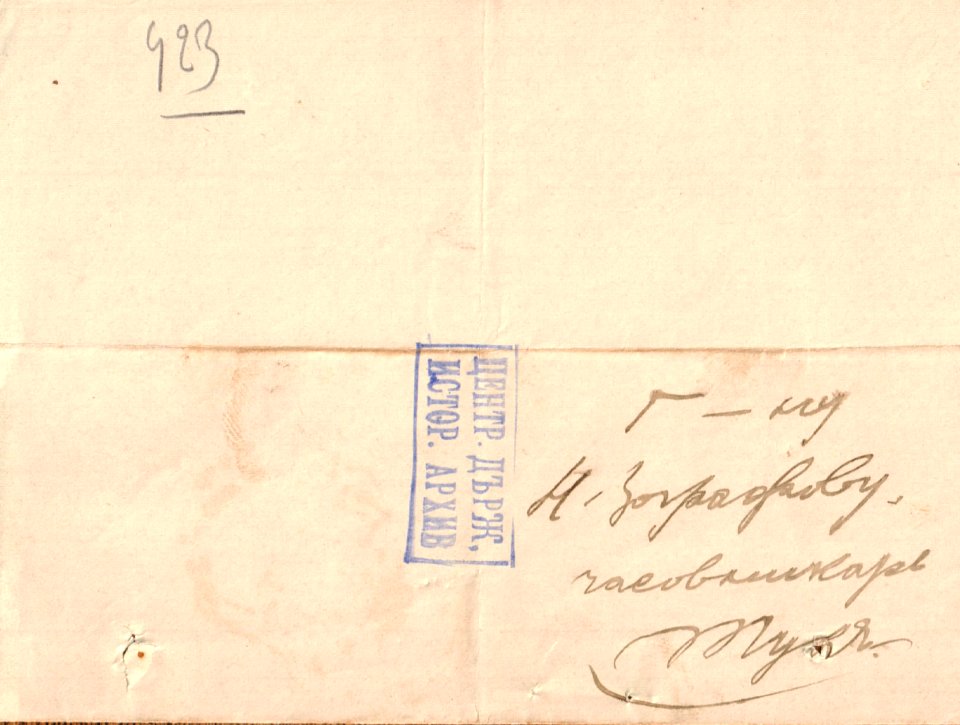 423
ЦЕНТР. ДЪРЖ.
ИСТОР. АРХИВ
Г – му
Н. Зографову.
часовникарь
Тукъ.